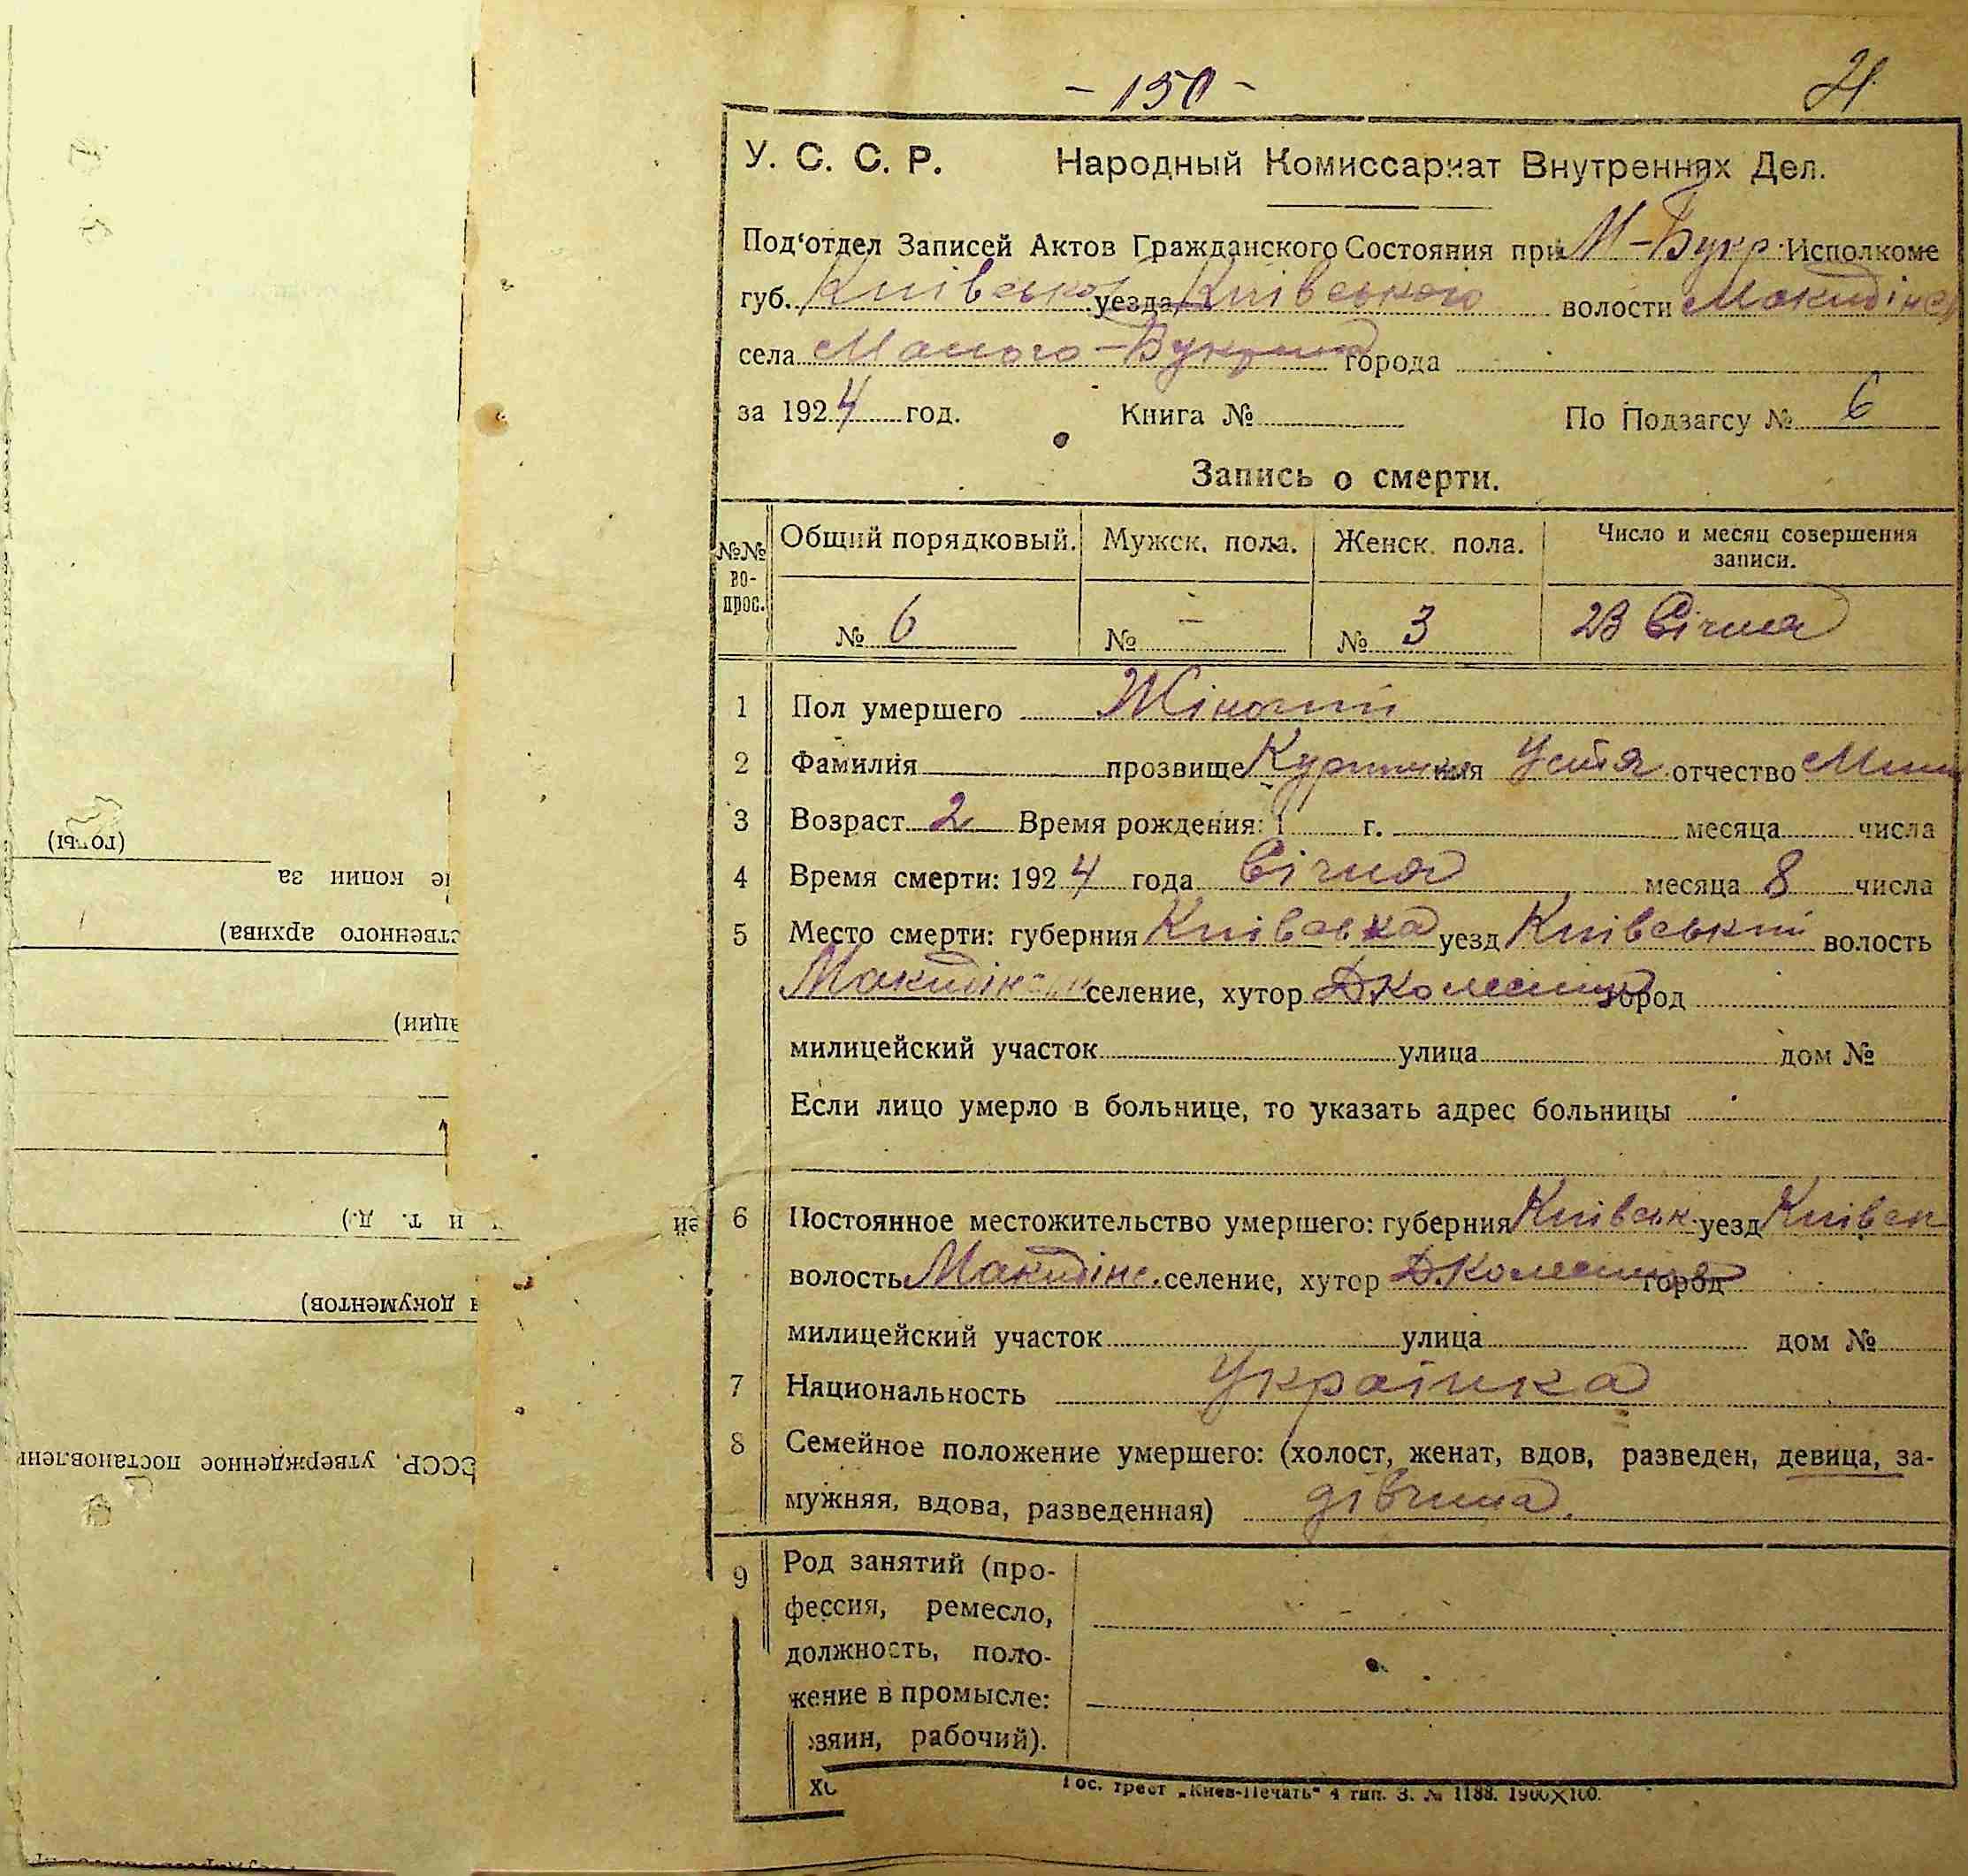 - 150 -
21
У. С. С. Р. Народный Комиссариат Внутренних Дел.
Под'отдел Записей Актов Гражданского Состояния при М-Букр. Исполкоме
губ. Київської уезда Київського волости Макидінс
села Малого-Букрина города
за 1924 год. Книга № По Подзагсу № 6
Запись о смерти.
№№ вопрос. Общий порядковый. Мужск. пола. Женск. пола. Число и месяц совершения записи.
№ 6 № - № 3 23 Січня
1 Пол умершего Жіночий
2 Фамилия прозвище имя Устя отчество
3 Возраст 2 Время рождения: 1 г. месяца числа
4 Время смерти: 1924 года Січня месяца 8 числа
5 Место смерти: губерния Київська уезд Київський волость
селение, хутор город
милицейский участок улица дом №
Если лицо умерло в больнице, то указать адрес больницы
6 Постоянное местожительство умершего: губерния Київськ. уезд Київськ
волость Макидінс. селение, хутор город
милицейский участок улица дом №
7 Национальность Українка
8 Семейное положение умершего: (холост, женат, вдов, разведен, девица, за-
мужняя, вдова, разведенная) дівчина.
9 Род занятий (про-
фессия, ремесло,
должность, поло-
жение в промысле:
зяин, рабочий).
Хо
Гос. трест „Киев-Печать" 4 тип. З. № 1188. 1900×100.
(годы)
ие копии за
ственного архива)
ации)
и т. д.)
ей
документов)
СССР, утвержденное постановлени